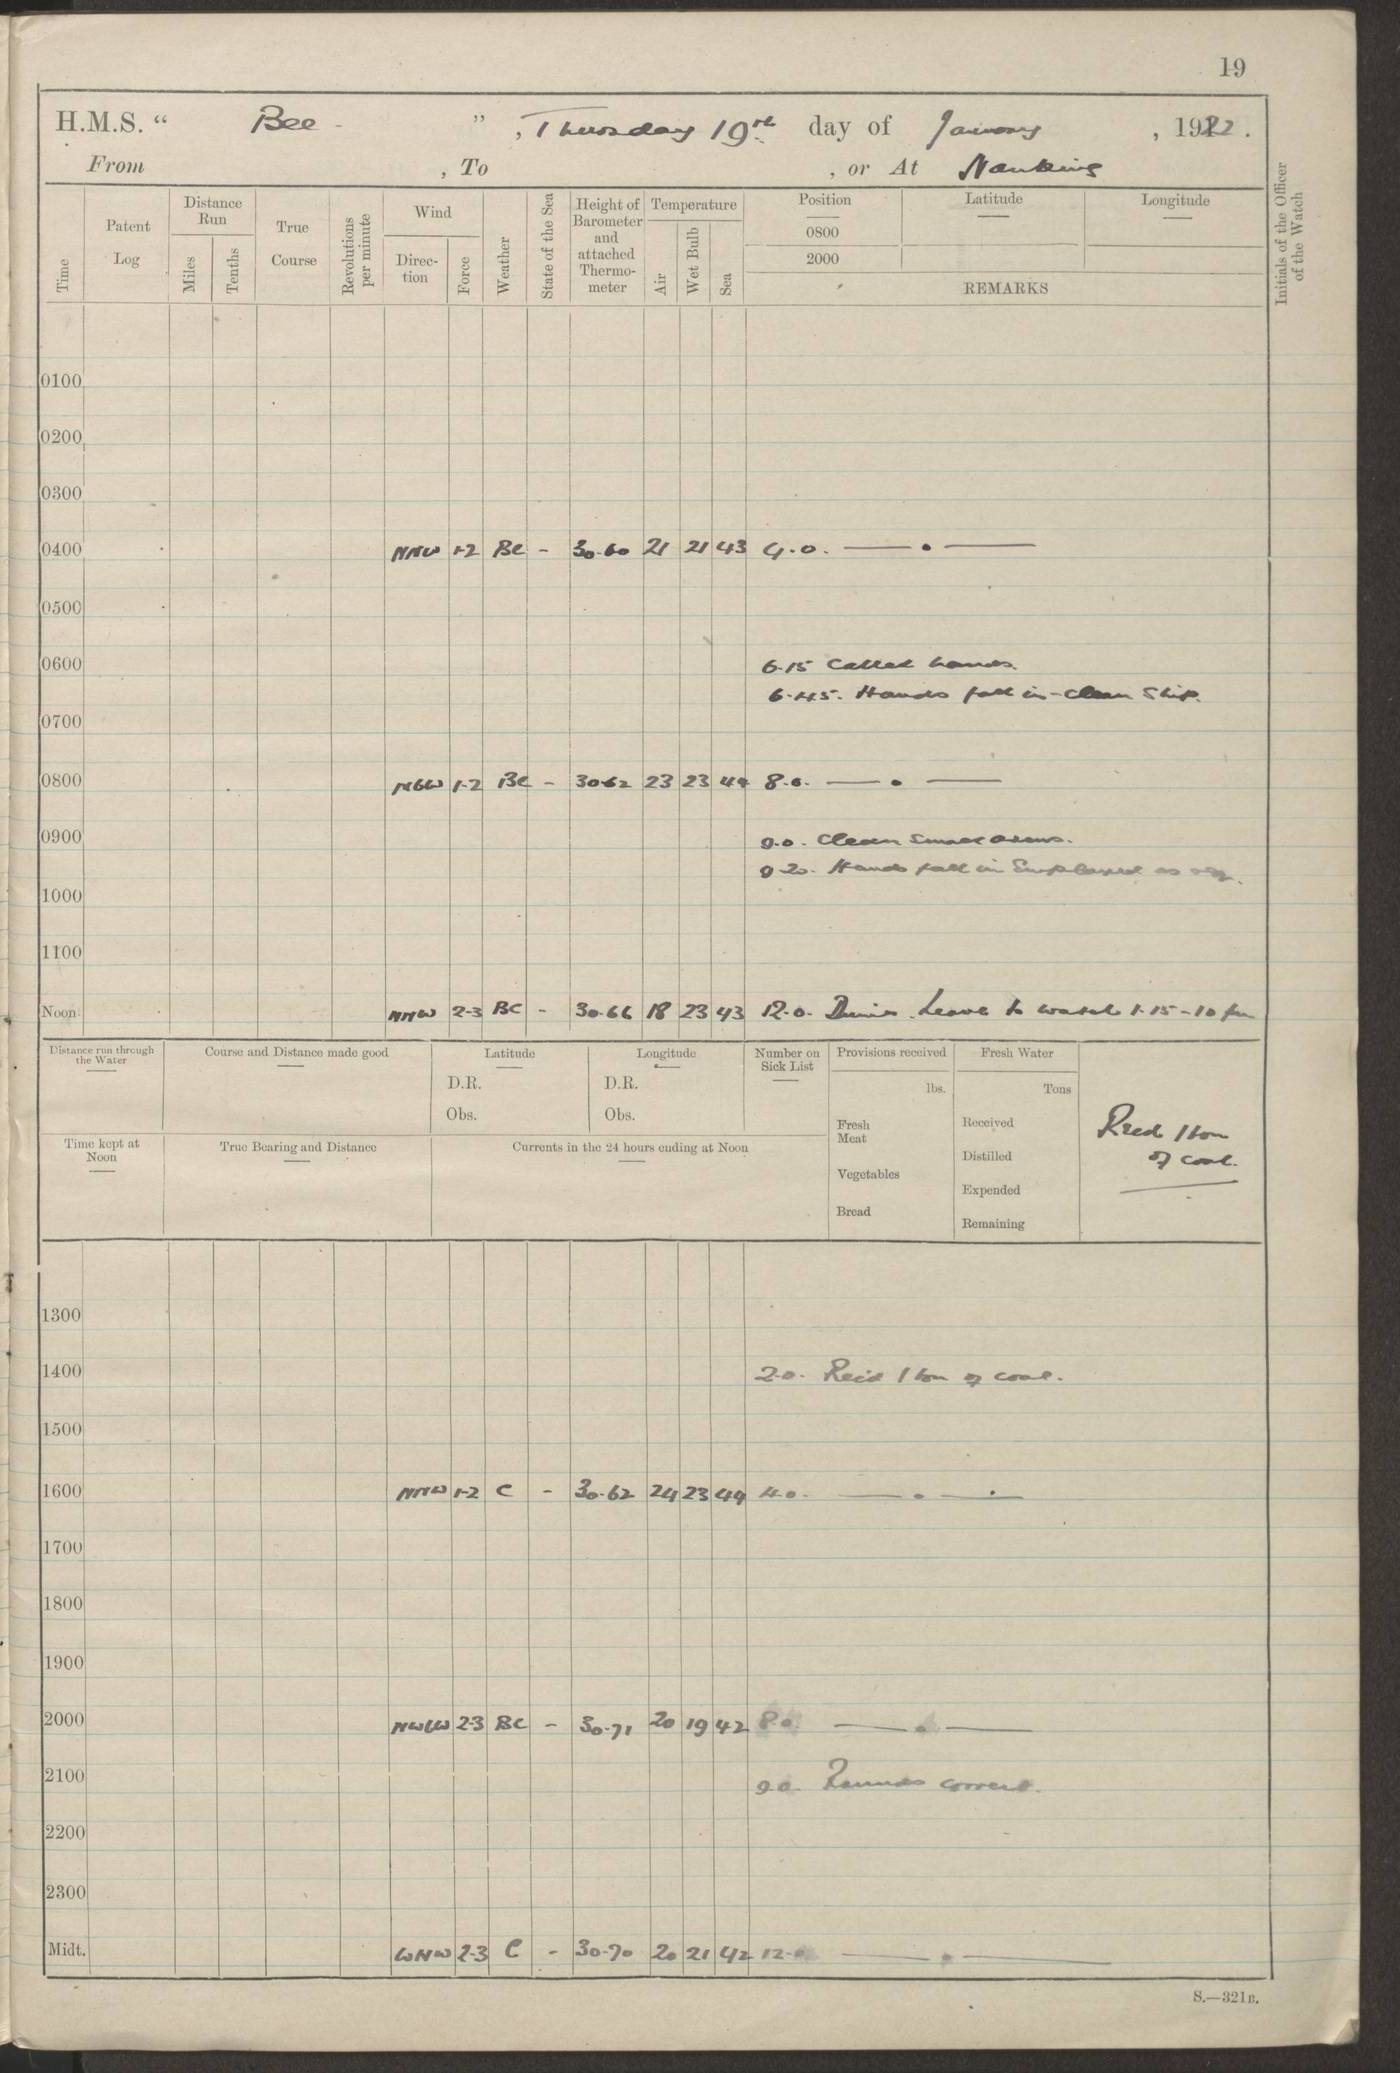 19
H.M.S. " Bee - ", Thursday 19th day of January, 1922.
From , To , or At Nanking
Time
Patent Log
Distance Run
Miles
Tenths
True Course
Revolutions per minute
Wind
Direc-tion
Force
Weather
State of the Sea
Height of Barometer and attached Thermo-meter
Temperature
Air
Wet Bulb
Sea
Position
0800
2000
Latitude
Longitude
REMARKS
Initials of the Officer of the Watch
0100
0200
0300
0400 NNW 1-2 BC - 30.60 21 21 43 4.0. — . —
0500
0600 6.15 Called hands.
6.45. Hands fall in - clean ship.
0700
0800 NbW 1-2 BC - 30.62 23 23 44 8.0. — . —
0900 9.0. Clean small arms.
9.20. Hands fall in Employed as req.
1000
1100
Noon NNW 2-3 BC - 30.66 18 23 43 12.0. Dinner. Leave to watch 1.15 - 10 pm
Distance run through the Water
Course and Distance made good
Latitude
D.R.
Obs.
Longitude
D.R.
Obs.
Number on Sick List
Provisions received
lbs.
Fresh Meat
Vegetables
Bread
Fresh Water
Tons
Received
Distilled
Expended
Remaining
Recd 1 ton
of coal.
Time kept at Noon
True Bearing and Distance
Currents in the 24 hours ending at Noon
1300
1400 2.0. Rec'd 1 ton of coal.
1500
1600 NNW 1-2 C - 30.62 24 23 44 4.0. — . —
1700
1800
1900
2000 NWbW 2-3 BC - 30.71 20 19 42 8.0. — . —
2100 9.0. Rounds correct.
2200
2300
Midt. WNW 2-3 C - 30.70 20 21 42 12.0 — . —
S.—321B.